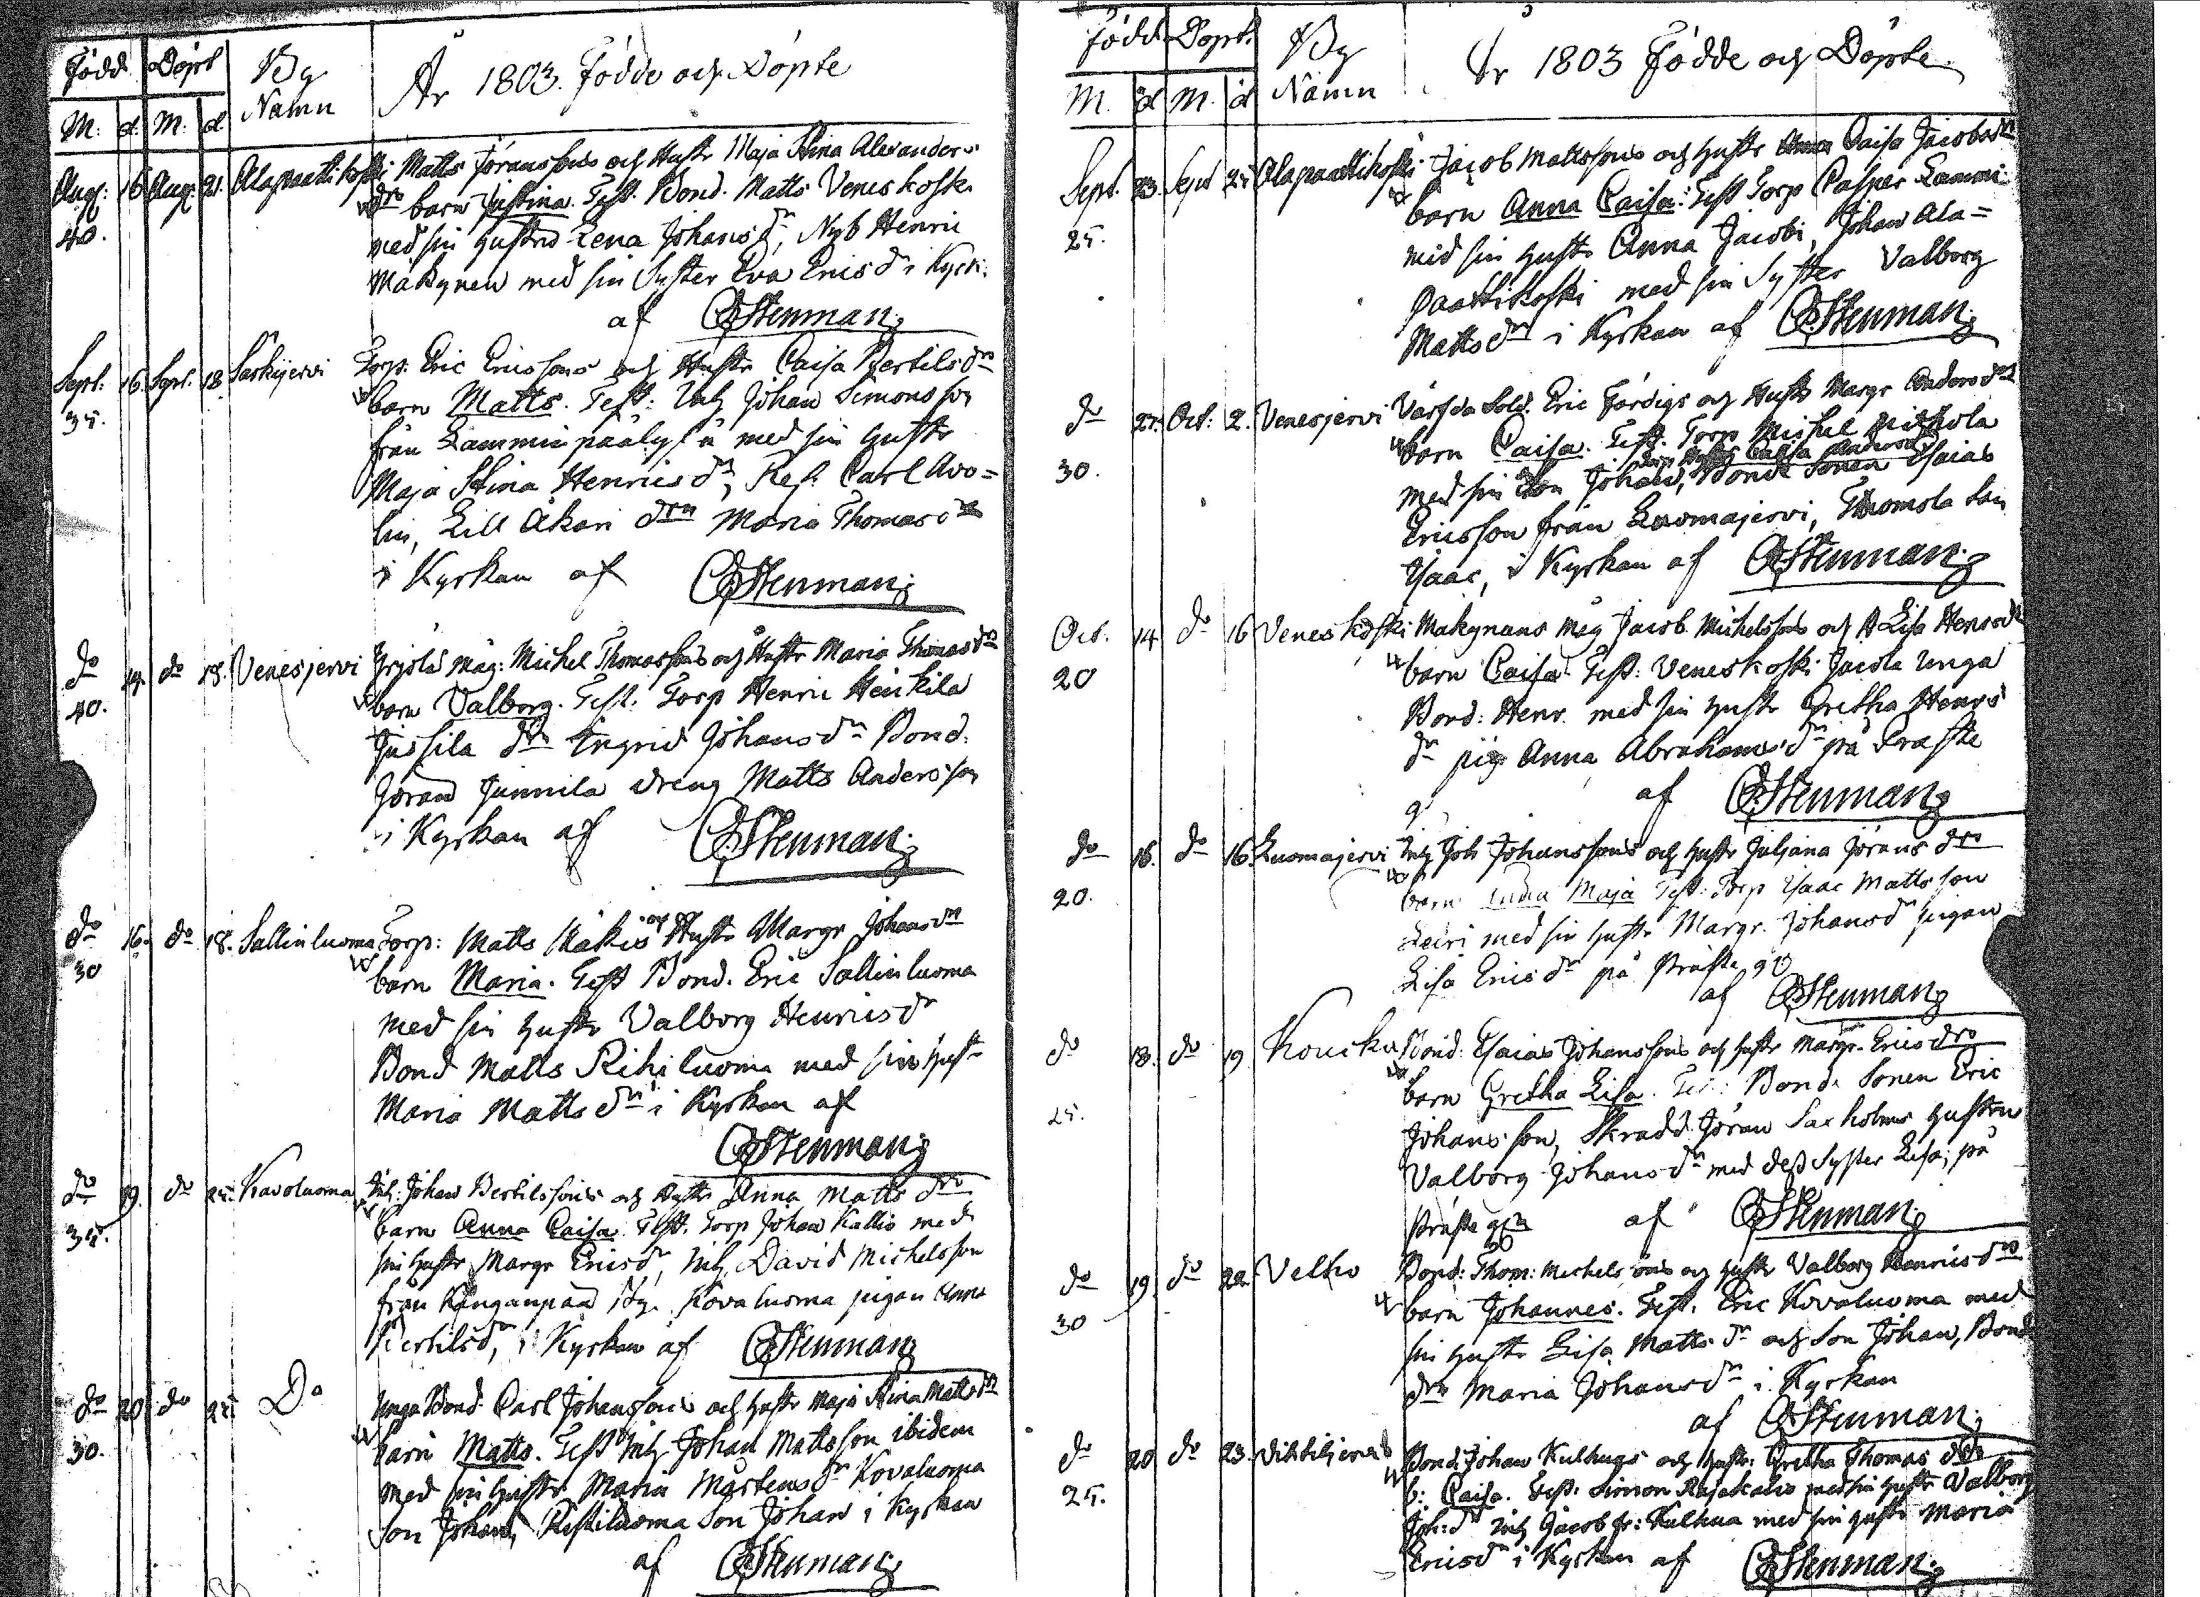 Född Döpt By Namn År 1803. Födde och Döpte
M: d. M: d
Aug: 16 Aug: 21. Alapaattikoski Matts Jöranssons och Hustr Maja Stina Alexanders
40. dr barn Justina. Test. Bond. Matts Veneskoski
med sin hustru Lena Johansdr, Nyb Henric
Mäkynen med sin Syster Eva Ericsdr i Kyrk:
af CGStenman
Sept: 16 Sept. 18 Säskijervi Torp: Eric Ericssons och Hustr Caisa Bertilsdr
35. barn Matts. Test: Inh Johan Simonsson
från Lamminpää med sin hustr
Maja Stina Henricsdr, Ref: Carl Avo=
lin, Lill Äkäri drn Maria Thomasdr
i Kyrkan af CGStenman
do 14. do 18. Venesjervi Yrjölä Måg: Michel Thomassons och Hustr Maria Thomasdr
40. barn Valborg. Test. Torp Henric Heickilä
Jussila drn Ingrid Johansdr Bond.
Jöran Junnila dreng Matts Andersson
i Kyrkan af CGStenman
do 16. do 18. Sallinluoma Torp: Matts Mäkis och Hustr Margr Johansdr
30 barn Maria. Test Bond. Eric Sallinluoma
med sin hustr Valborg Henricsdr
Bond Matts Rihiluoma med sin hustr
Maria Mattsdr i Kyrkan af
CGStenman
do 19. do 25. Kavoluoma Inh: Johan Bertilssons och Hustr Anna Mattsdr
35. barn Anna Caisa. Test. Torp Johan Kallio med
sin hustr Margr Ericsdr, Inh David Michelsson
från Kanganpää Kovaluoma pigan Anna
Bertilsdr, i Kyrkan af CGStenman
do 20 do 25. Do Unga Bond. Carl Johanssons och hustr Maja Stina Mattsdr
30. barn Matts. Test Inh Johan Mattsson ibidem
med sin hustr Maria Mårtensdr Kovaluoma
son Johan, Ristiluoma Son Johan i Kyrkan
af CGStenman
Född Döpt. By Namn År 1803 Födde och Döpte
M. d M. d
Sept. 23. Sept 25 Alapaattikoski Jacob Mattssons och hustr Caisa Jacobsdr
25. barn Anna Caisa: Test Torp Casper Lammi
med sin hustr Anna Jacobi, Johan Ala=
paattikoski med sin Syster Valborg
Mattsdr i Kyrkan af CGStenman
do 27. Oct: 2. Venesjervi Värfda Sold. Eric Färdigs och Hustr Margr Andersdr
30. barn Caisa. Test. Torp Michel
med sin Son Johan, Bonde Sonen Esaias
Ericsson från Luomajervi, Thomola Son
Isaac, i Kyrkan af CGStenman
Oct. 14 do 16 Veneskoski Makynens Måg Jacob Michelssons och H Lisa Henrsdr
20 barn Caisa Test: Veneskoski Jacola Unga
Bond: Henr. med sin hustr Gretha Henrs
dr pig Anna Abrahamsdr på Präste
g. af CGStenman
do 16. do 16. Luomajervi Inh Joh Johanssons och hustr Juliana Jöransdr
20. barn Maja Test: Torp Isaac Mattsson
Leiri med sin hustr Margr. Johansdr pigan
Lisa Ericsdr på Präste gd
af CGStenman
do 18. do 19 Koucku Bond: Esaias Johanssons och hustr Margr. Ericsdr
25. barn Gretha Lisa. Test: Bond. Sonen Eric
Johansson, Skradd. Jöran Saxholms hustru
Valborg Johansdr med dess Syster Lisa, på
Präste af CGStenman
do 19. do 22. Veltto Bond: Thom: Michelssons och hustr Valborg Henricsdr
30 barn Johannes. Test. Eric Kovaluoma med
sin hustr Lisa Mattsdr och Son Johan, Bond
drn Maria Johansdr i Kyrkan
af CGStenman
do 20 do 23. Bond: Johan Kulhuas och hustr: Gretha Thomasdr
25. b: Caisa. Test. Simon Rajakalio med sin hustr Valborg
Joh:dr Inh Jacob Kulhua med sin hustr Maria
Ericsdr i Kyrkan af CGStenman